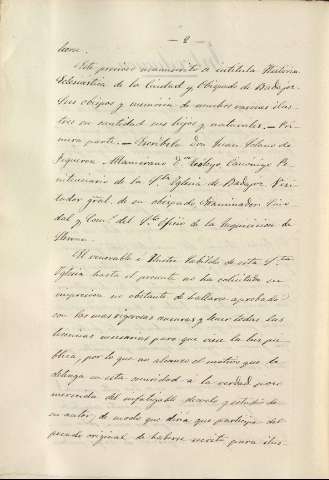 — 2 —
hora.
Este precioso manuscrito se intitula Historia
Eclesiastica de la Ciudad y Obispado de Badajoz.
Sus obispos y memoria de muchos varones ilus-
tres en santidad sus hijos y naturales. — Pri-
mera parte. — Escribela Don Juan Solano de
Figueroa. — Altamirano Dr. Teologo Canonigo Pe-
nitenciario de la Sta Iglesia de Badajoz Visi-
tador gral. de su obispado Examinador Sino-
dal y Com.º del Sto Oficio de la Inquisicion de
Llerena.
El venerable e Ilustre Cabildo de esta Sta
Iglesia hasta el presente no ha solicitado su
impresion no obstante de hallarse aprobada
con las mas rigorosas censuras y tener todas las
licencias necesarias para que vea la luz pu-
blica, por lo que no alcanzo el motivo que la
detenga en esta oscuridad a la verdad poco
merecida del infatigable desvelo y estudio de
su autor, de modo que diria que participa del
pecado original de haberse escrito para ilus-